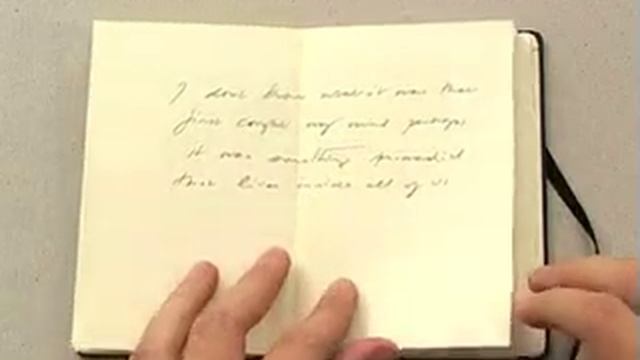 I don't know what it was that
first caught my mind perhaps
it was something primordial
that lives inside all of us